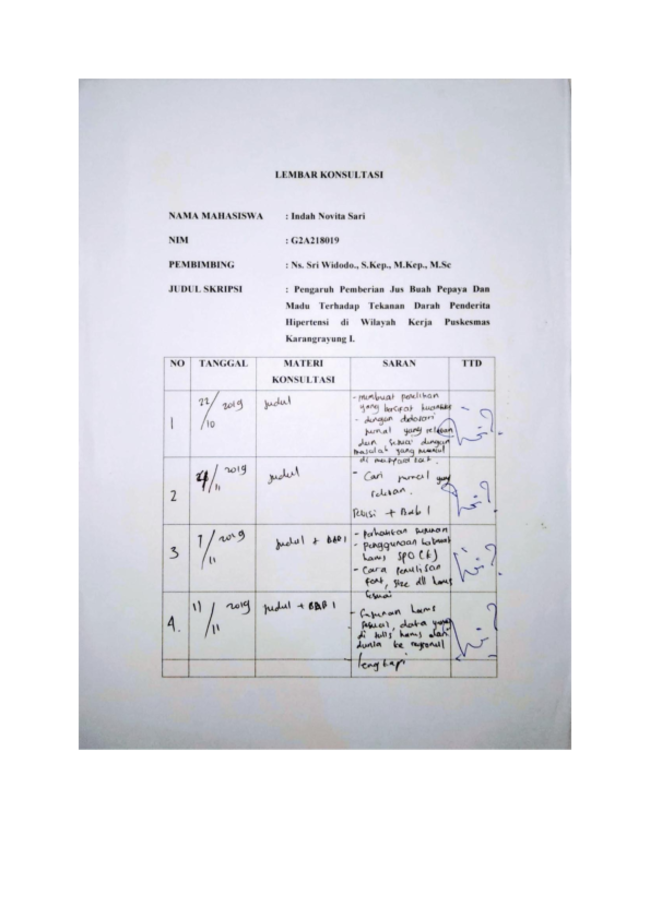 LEMBAR KONSULTASI
NAMA MAHASISWA : Indah Novita Sari
NIM : G2A218019
PEMBIMBING : Ns. Sri Widodo., S.Kep., M.Kep., M.Sc
JUDUL SKRIPSI : Pengaruh Pemberian Jus Buah Pepaya Dan
Madu Terhadap Tekanan Darah Penderita
Hipertensi di Wilayah Kerja Puskesmas
Karangrayung I.
NO TANGGAL MATERI KONSULTASI SARAN TTD
1 22/10 2019 Judul
- membuat penelitian
yang bersifat
- dengan
jurnal yang relevan
dan sesuai dengan
masalah yang muncul
di masyarakat.
2 4/11 2019 Judul
- Cari jurnal yang
relevan.
Revisi + Bab 1
3 7/11 2019 Judul + BAB 1
- Perhatikan susunan
- Penggunaan kalimat
harus SPO (K)
- Cara Penulisan
font, size dll harus
sesuai
4. 11/11 2019 Judul + BAB 1
- Susunan harus
sesuai, data yang
di tulis harus dari
dunia ke regional
lengkapi